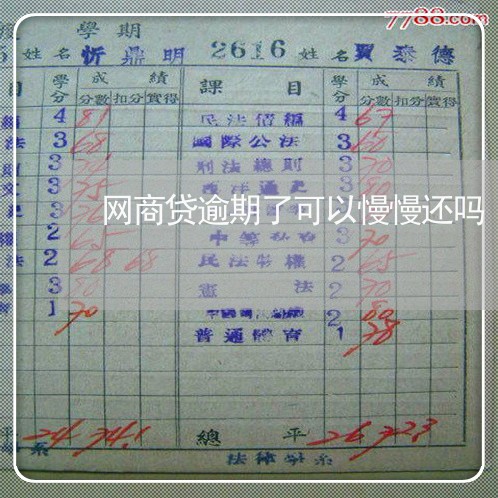 7788.com
學期
姓名 忻鼎明 2616 姓名 賈泰德
目 學分 成績 課目 學分 成績
分數 扣分 實得 分數 扣分 實得
4 81 民法債編 4 67
法 3 68 國際公法 3 60
3 刑法總則 3 70
文 3 75 西洋通史 3 80
網商贷逾期了可以慢慢还吗
權 2 65 3 70
法 2 68 68 民法物權 2 65
3 80 憲法 2 70
育 1 70 2 80
普通體育 1 78
平 24 74.1 總平 26 72.3
系 法律學系